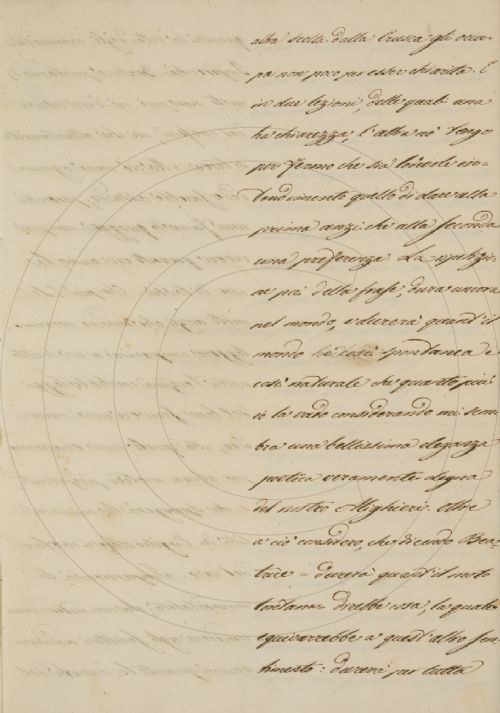 altra scelta dalla Crusca gli occu-
pa non poco per esser chiarita. E
in due lezioni, delle quali una
ha chiarezza, l'altra nò tengo
per fermo che sia lodevole in-
tendimento quello di dare alla
prima anzi che alla seconda
una preferenza. La ripetizio-
ne poi della frase, dura ancora
nel mondo, e durerà quant'il
mondo così spontanea e
così naturale che quanto più
io la vado considerando mi sem
bra una bellissima eleganza
poetica veramente degna
del nostro Alighieri. Oltre
a ciò considero, che dicendo Bea-
trice = durerà quant'il moto
lontana = direbbe cosa, la quale
equivarrebbe a quest'altro sen-
timento: durerà per tutta